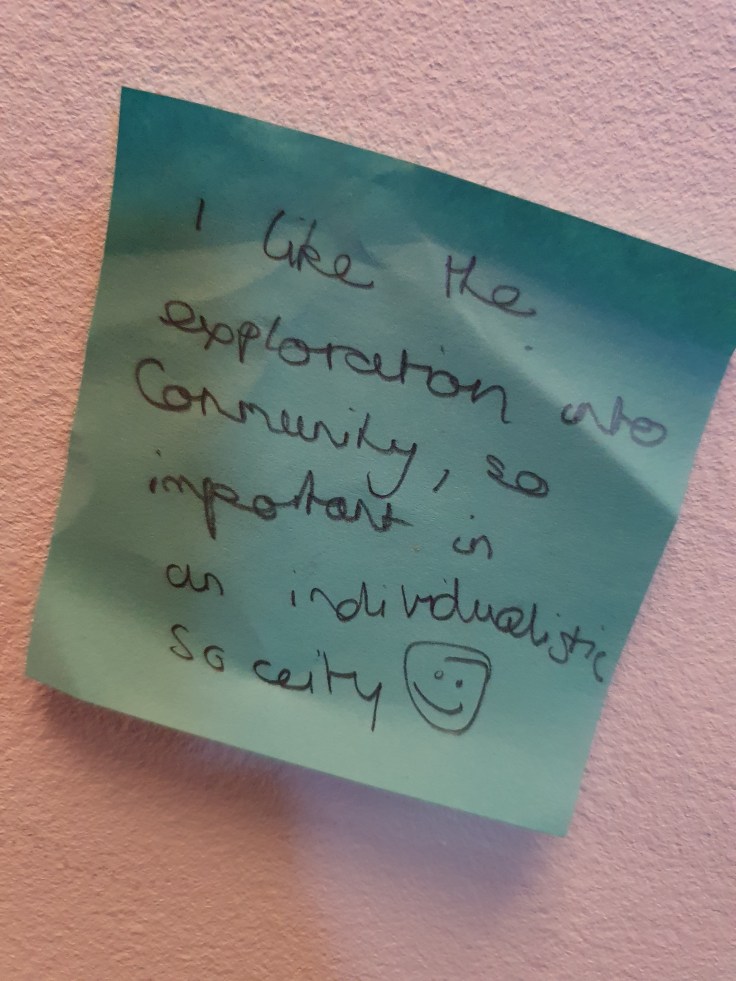 I like the
exploration into
Community, so
important in
an individualistic
soceity